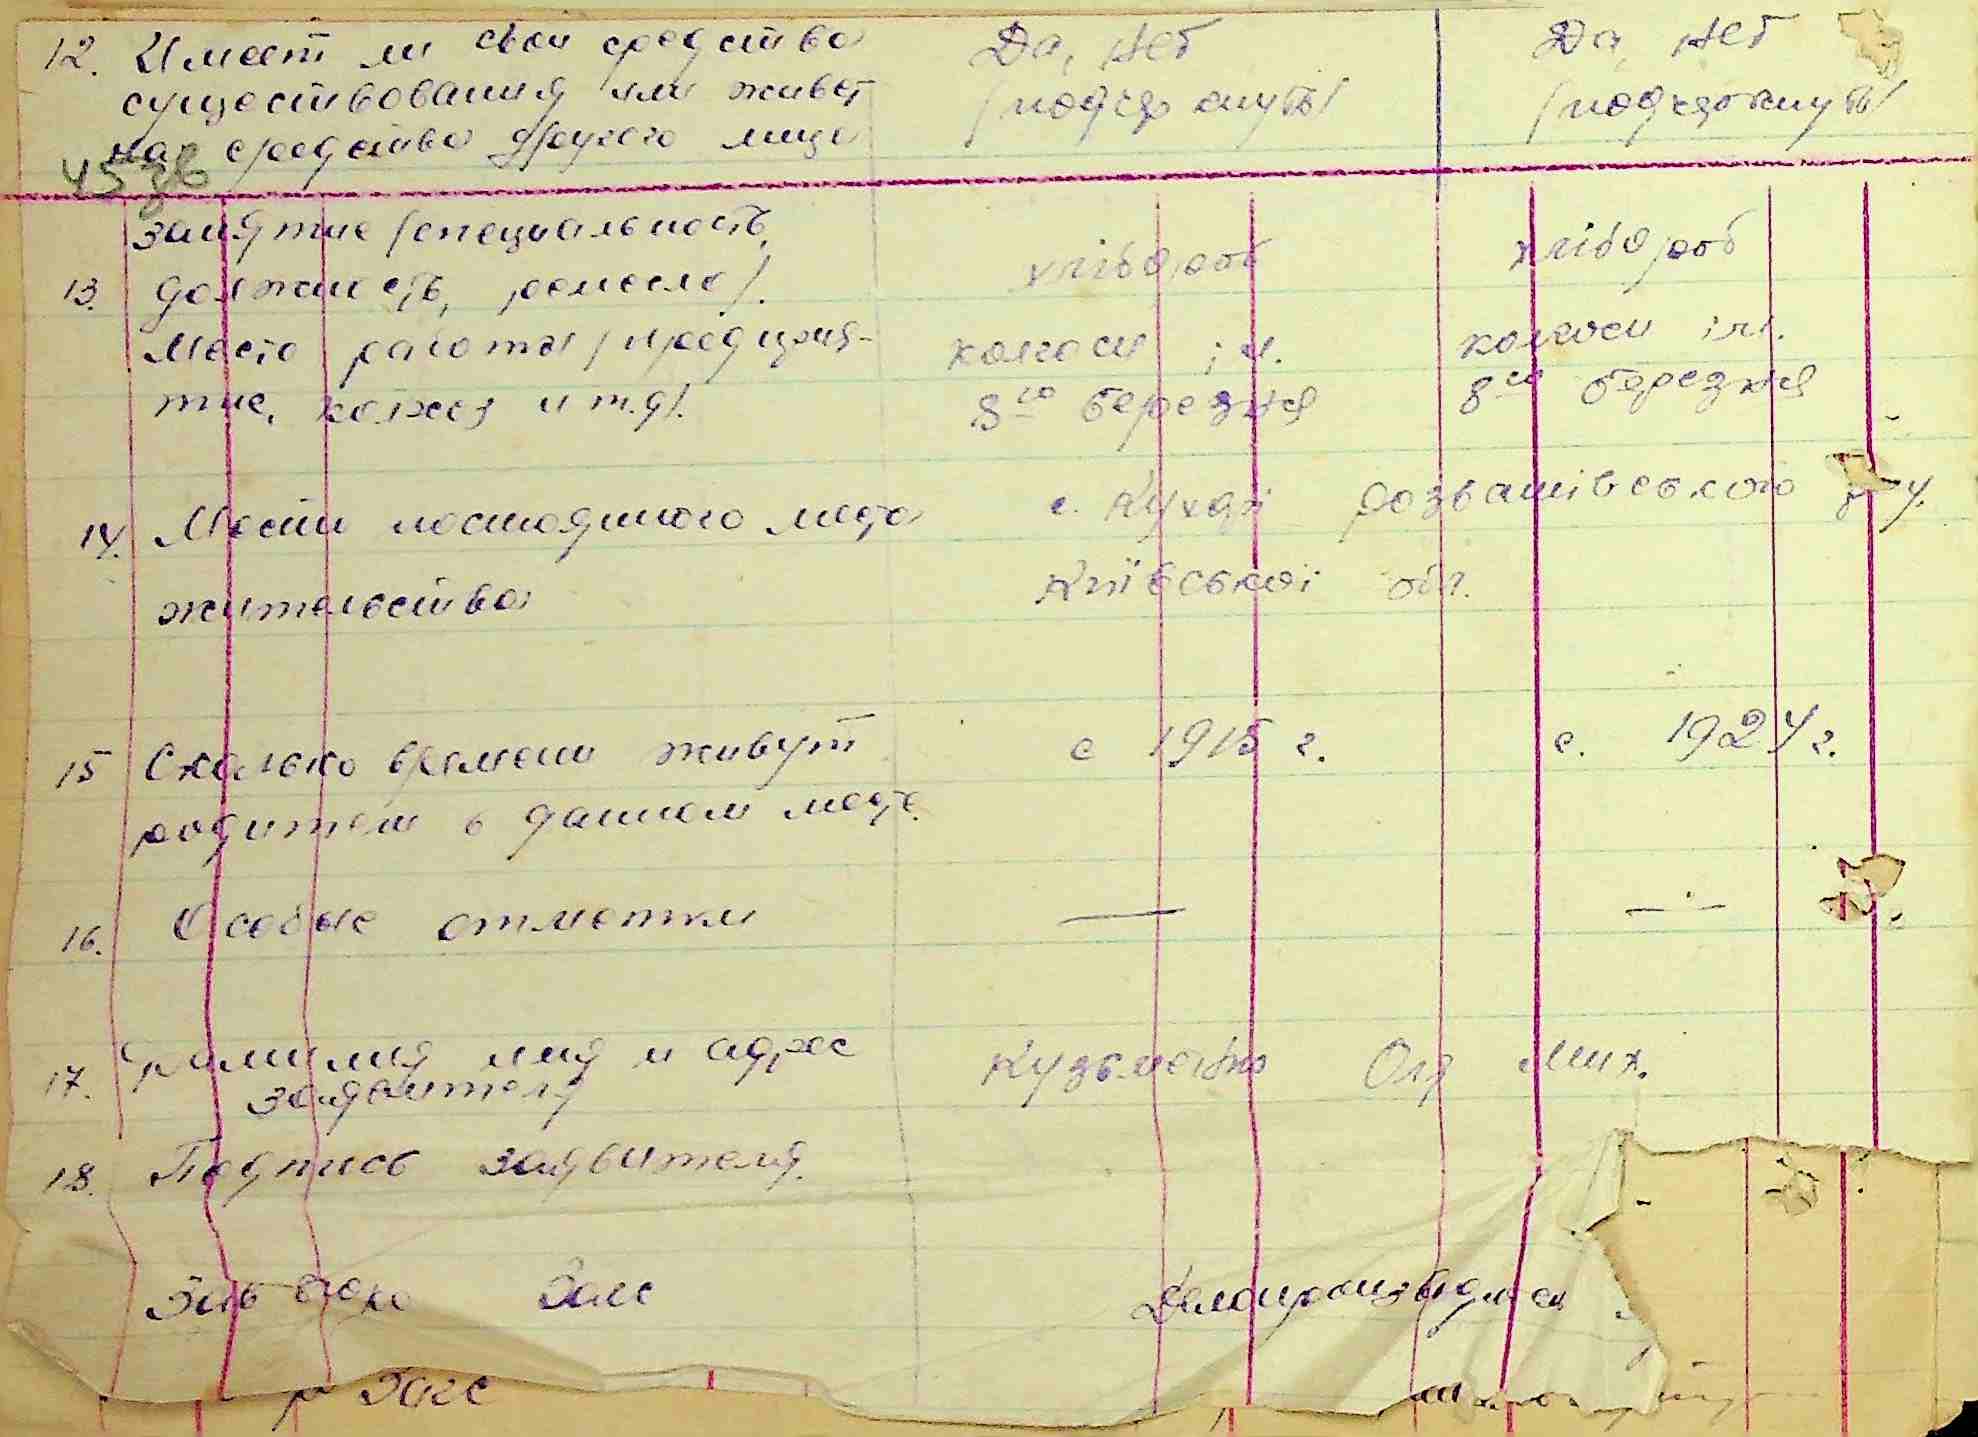 12. Имеет ли свои средства Да, нет Да, нет
существования или живет /подчеркнуть/ /подчеркнуть/
на средства другого лица
45 зв
занятие /специальность,
13. должность, ремесло/. хлібороб хлібороб
Место работы /предприя- колгосп ім. колгосп ім.
тие, колхоз и т.д/. 8го березня 8го березня
14. Место постоянного места с. Кухарі Розважівського р-ну.
жительства Київської обл.
15 Сколько времени живут с 1915 г. с. 1924 г.
родители в данном месте.
16. Особые отметки — —
17. Фамилия имя и адрес Кузьменко Оля Мих.
заявителя
18. Подпись заявителя.
Зав бюро Загс Делопроизводитель
Загс